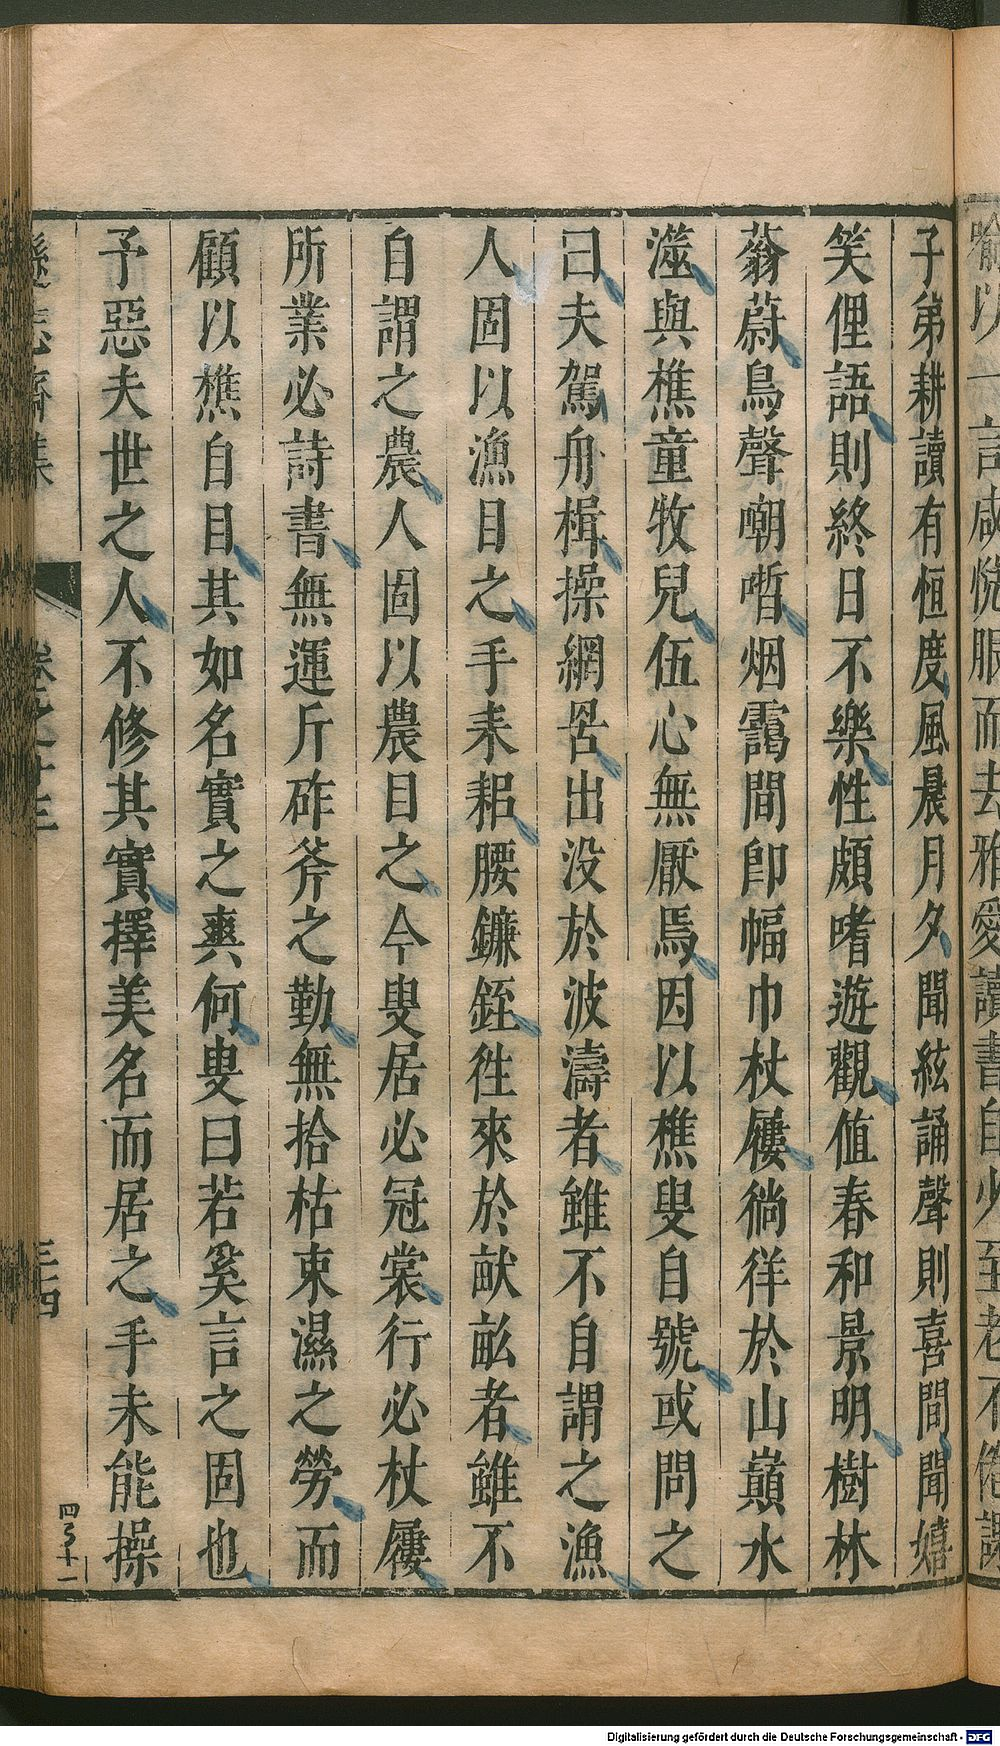 喻以一言咸悅服而去雅愛讀書自少至老不倦課
子弟耕讀有恒度風晨月夕聞絃誦聲則喜間聞嬉
笑俚語則終日不樂性頗嗜遊觀值春和景明樹林
蓊蔚鳥聲嘲哳烟靄間卽幅巾杖屨徜徉於山巔水
澨與樵童牧兒伍心無厭焉因以樵叟自號或問之
曰夫駕舟楫操網罟出没於波濤者雖不自謂之漁
人固以漁目之手耒耜腰鐮銍徃來於畎畝者雖不
自謂之農人固以農目之今叟居必冠裳行必杖屨
所業必詩書無運斤斫斧之勤無拾枯束濕之勞而
顧以樵自目其如名實之爽何叟曰若奚言之固也
予惡夫世之人不修其實擇美名而居之手未能操
遜志齋集 卷之十三 三十四
Digitalisierung gefördert durch die Deutsche Forschungsgemeinschaft - DFG